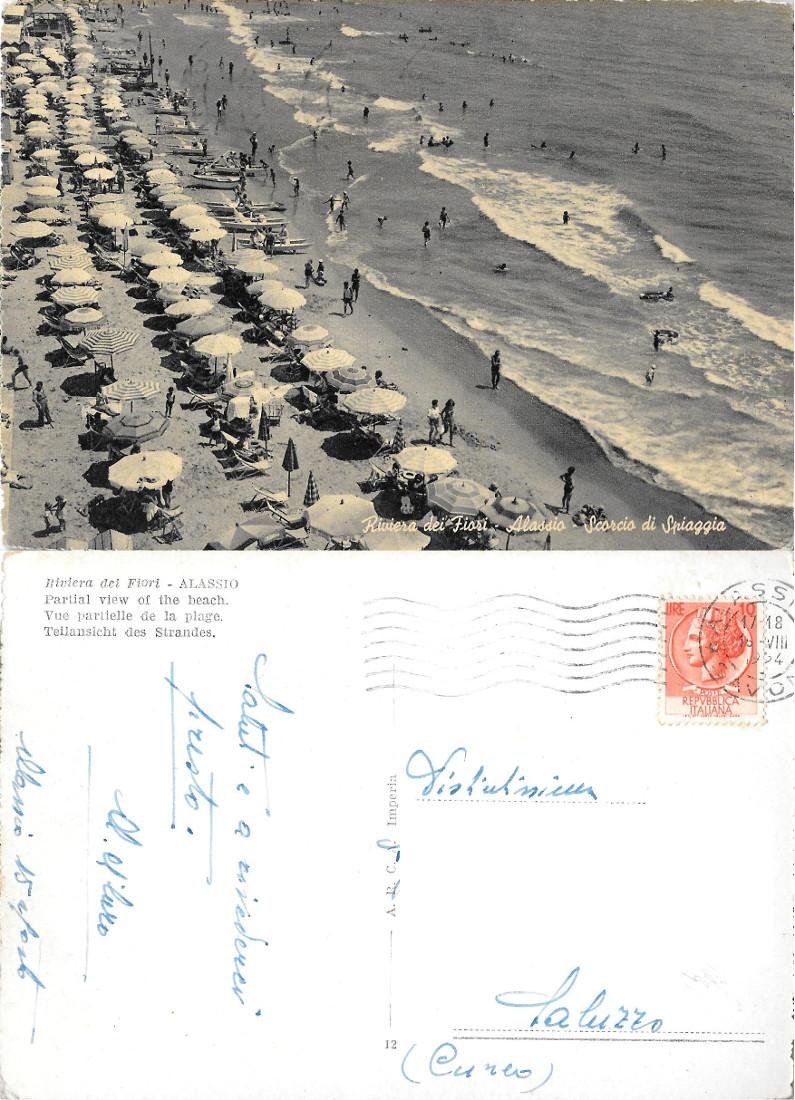 Riviera dei Fiori - Alassio Scorcio di Spiaggia
Riviera dei Fiori - ALASSIO
Partial view of the beach.
Vue partielle de la plage.
Teilansicht des Strandes.
LIRE 10
POSTE
REPVBBLICA
ITALIANA
17-18
VIII
Saluti e a rivederci
presto.
Alassio 15 agosto
Imperia
12
Distintissima
Saluzzo
(Cuneo)